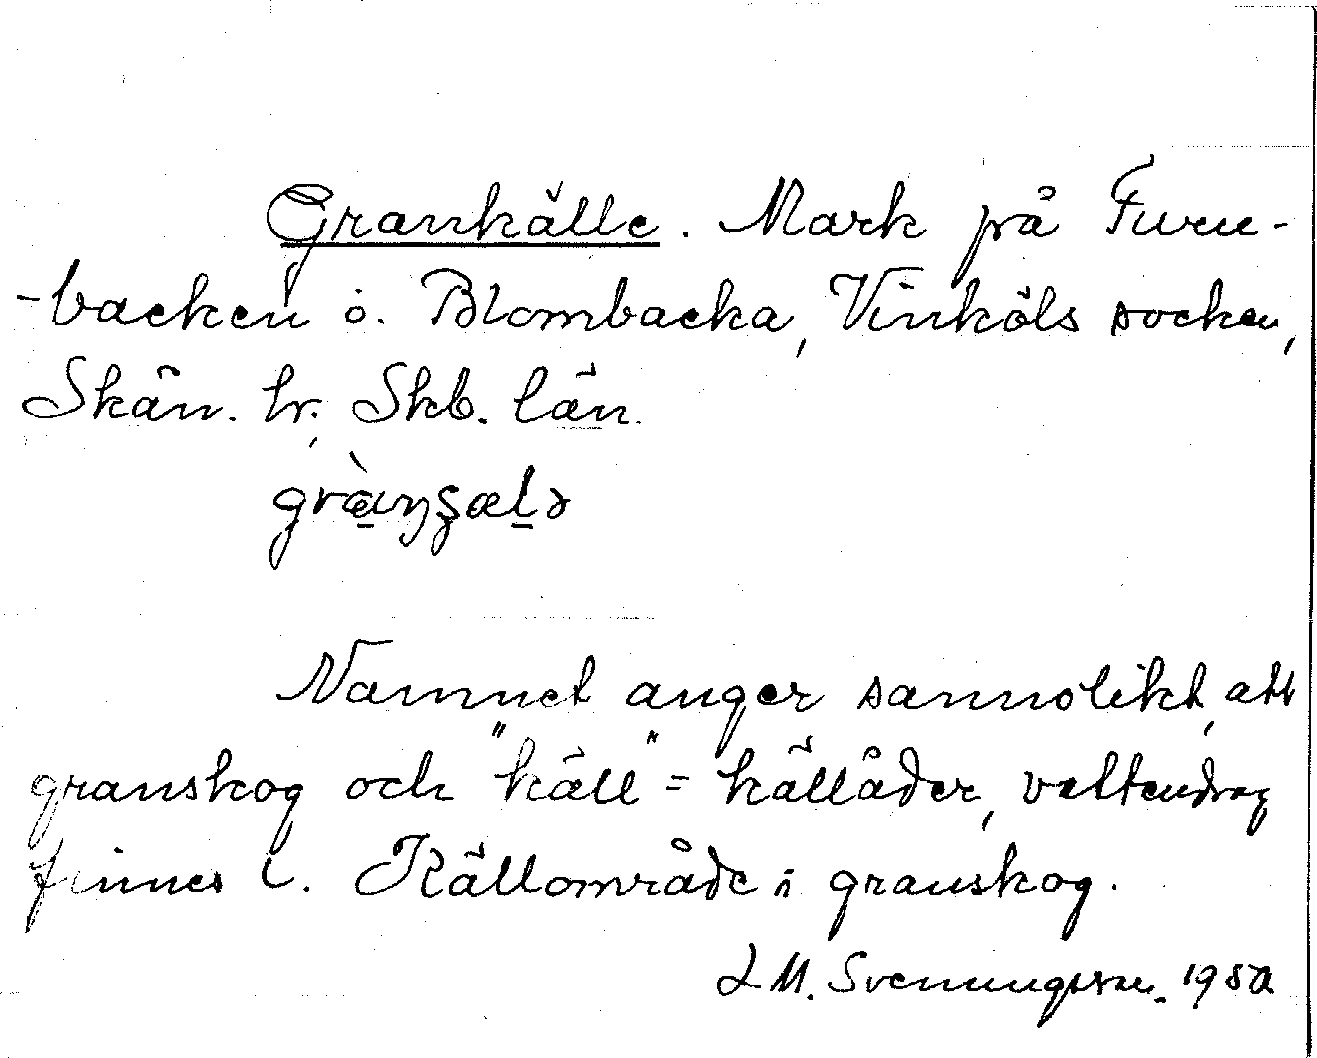 Grankälle. Mark på Furu-
-backen i. Blombacka, Vinköls socken,
Skån. hr. Skb. län.
grànʂælə
Namnet anger sannolikt, att
granskog och "käll" = källåder, vattendrag
finnes i. Källområde i granskog.
L M. Svenungsson. 1950